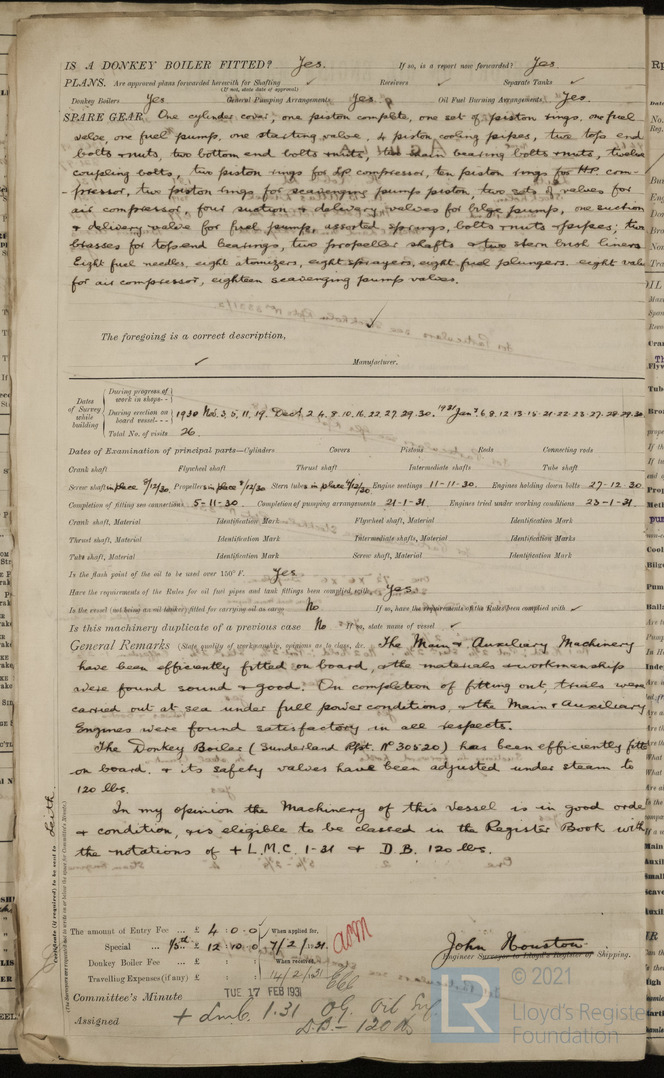 IS A DONKEY BOILER FITTED? Yes. If so, is a report now forwarded? Yes.
PLANS. Are approved plans forwarded herewith for Shafting ✓ Receivers ✓ Separate Tanks ✓
(If not, state date of approval)
Donkey Boilers Yes General Pumping Arrangements Yes. Oil Fuel Burning Arrangements Yes.
SPARE GEAR. One cylinder cover, one piston complete, one set of piston rings, one fuel
valve, one fuel pump, one starting valve, 4 piston cooling pipes, two top end
bolts & nuts, two bottom end bolts & nuts, two main bearing bolts & nuts, twelve
coupling bolts, two piston rings for LP compressor, ten piston rings for HP com-
-pressor, two piston rings for scavenging pumps piston, two sets of valves for
air compressor, four suction & delivery valves for bilge pumps, one suction
& delivery valve for fuel pump, assorted springs, bolts & nuts & pipes, two
brasses for top end bearings, two propeller shafts & two stern bush liners
Eight fuel needles, eight atomizers, eight sprayers, eight fuel plungers. eight valve
for air compressor, eighteen scavenging pump valves.
The foregoing is a correct description,
✓ Manufacturer.
Dates of Survey while building
During progress of work in shops - -
During erection on board vessel - - - 1930 Nov. 3, 5, 11, 19. Dec. 2, 4, 8, 10, 16, 22, 27, 29, 30. 1931 Jan. 6, 8, 12, 13, 15, 21, 22, 23, 27, 28, 29, 30
Total No. of visits 26.
Dates of Examination of principal parts—Cylinders Covers Pistons Rods Connecting rods
Crank shaft Flywheel shaft Thrust shaft Intermediate shafts Tube shaft
Screw shaft in place 8/12/30 Propellers in place 8/12/30 Stern tubes in place 8/12/30 Engine seatings 11-11-30. Engines holding down bolts 27-12-30
Completion of fitting sea connections 5-11-30 Completion of pumping arrangements 21-1-31 Engines tried under working conditions 23-1-31
Crank shaft, Material Identification Mark Flywheel shaft, Material Identification Mark
Thrust shaft, Material Identification Mark Intermediate shafts, Material Identification Mark
Tube shaft, Material Identification Mark Screw shaft, Material Identification Mark
Is the flash point of the oil to be used over 150° F. Yes
Have the requirements of the Rules for oil fuel pipes and tank fittings been complied with Yes
Is the vessel (not being an oil tanker) fitted for carrying oil as cargo No If so, have the requirements of the Rules been complied with ✓
Is this machinery duplicate of a previous case No If so, state name of vessel ✓
General Remarks (State quality of workmanship, opinions as to class, &c. The Main & Auxiliary Machinery
have been efficiently fitted on board, & the materials & workmanship
were found sound & good. On completion of fitting out, trials were
carried out at sea under full power conditions, & the Main & Auxiliary
Engines were found satisfactory in all respects.
The Donkey Boiler (Sunderland Rpt. No 30520) has been efficiently fitted
on board. & its safety valves have been adjusted under steam to
120 lbs.
In my opinion the Machinery of this Vessel is in good order
& condition, & is eligible to be classed in the Register Book with
the notations of + L.M.C. 1-31 & D.B. 120 lbs.
Certificate (if required) to be sent to Leith.
(The Surveyors are requested not to write on or below the space for Committee's Minute.)
The amount of Entry Fee ... £ 4 : 0 : 0 When applied for,
Special ... 4/5th ... £ 12 : 10 : 0 7/2/1931.
Donkey Boiler Fee ... £ : : When received,
Travelling Expenses (if any) £ : : 14/2/31
John Houston
Engineer Surveyor to Lloyd's Register of Shipping.
Committee's Minute TUE 17 FEB 1931
Assigned + Lmb. 1.31 OG Oil Eng.
D.B - 120 lb
© 2021
Lloyd's Register
Foundation
LR